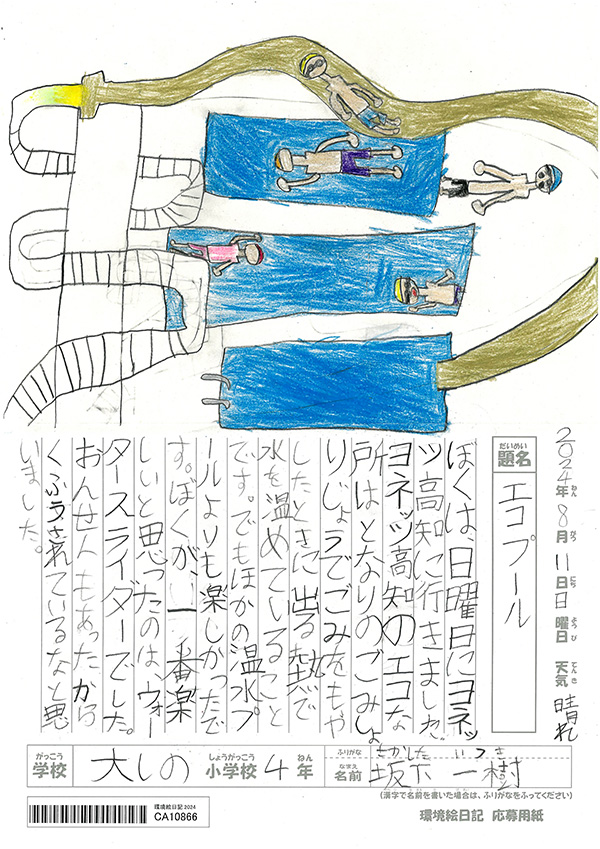 2024年8月11日日曜日 天気 晴れ
ねん がつ にち ようび てんき
だいめい
題名
エコプール
ぼくは、日曜日にヨネッ
ツ高知に行きました。
ヨネッツ高知のエコな
所はとなりのごみしょ
りじょうでごみをもや
したときに出る熱で
水を温めていること
です。でもほかの温水プ
ールよりも楽しかったで
す。ぼくが、一番楽
しいと思ったのは、ウォー
タースライダーでした。
おんせんもあったから
くふうされているなと思
いました。
がっこう
学校
大しの
しょうがっこう
小学校
4
ねん
年
ふりがな
さかした いつき
なまえ
名前
坂下 一樹
(漢字で名前を書いた場合は、ふりがなをふってください)
環境絵日記 2024
CA10866
環境絵日記 応募用紙